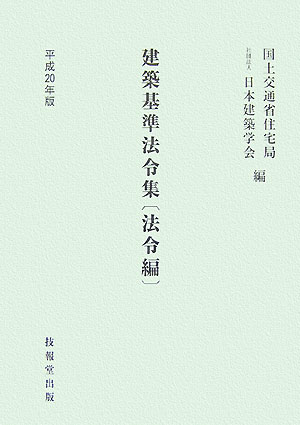 国土交通省住宅局
社団法人 日本建築学会
編
建築基準法令集〔法令編〕
平成20年版
技報堂出版